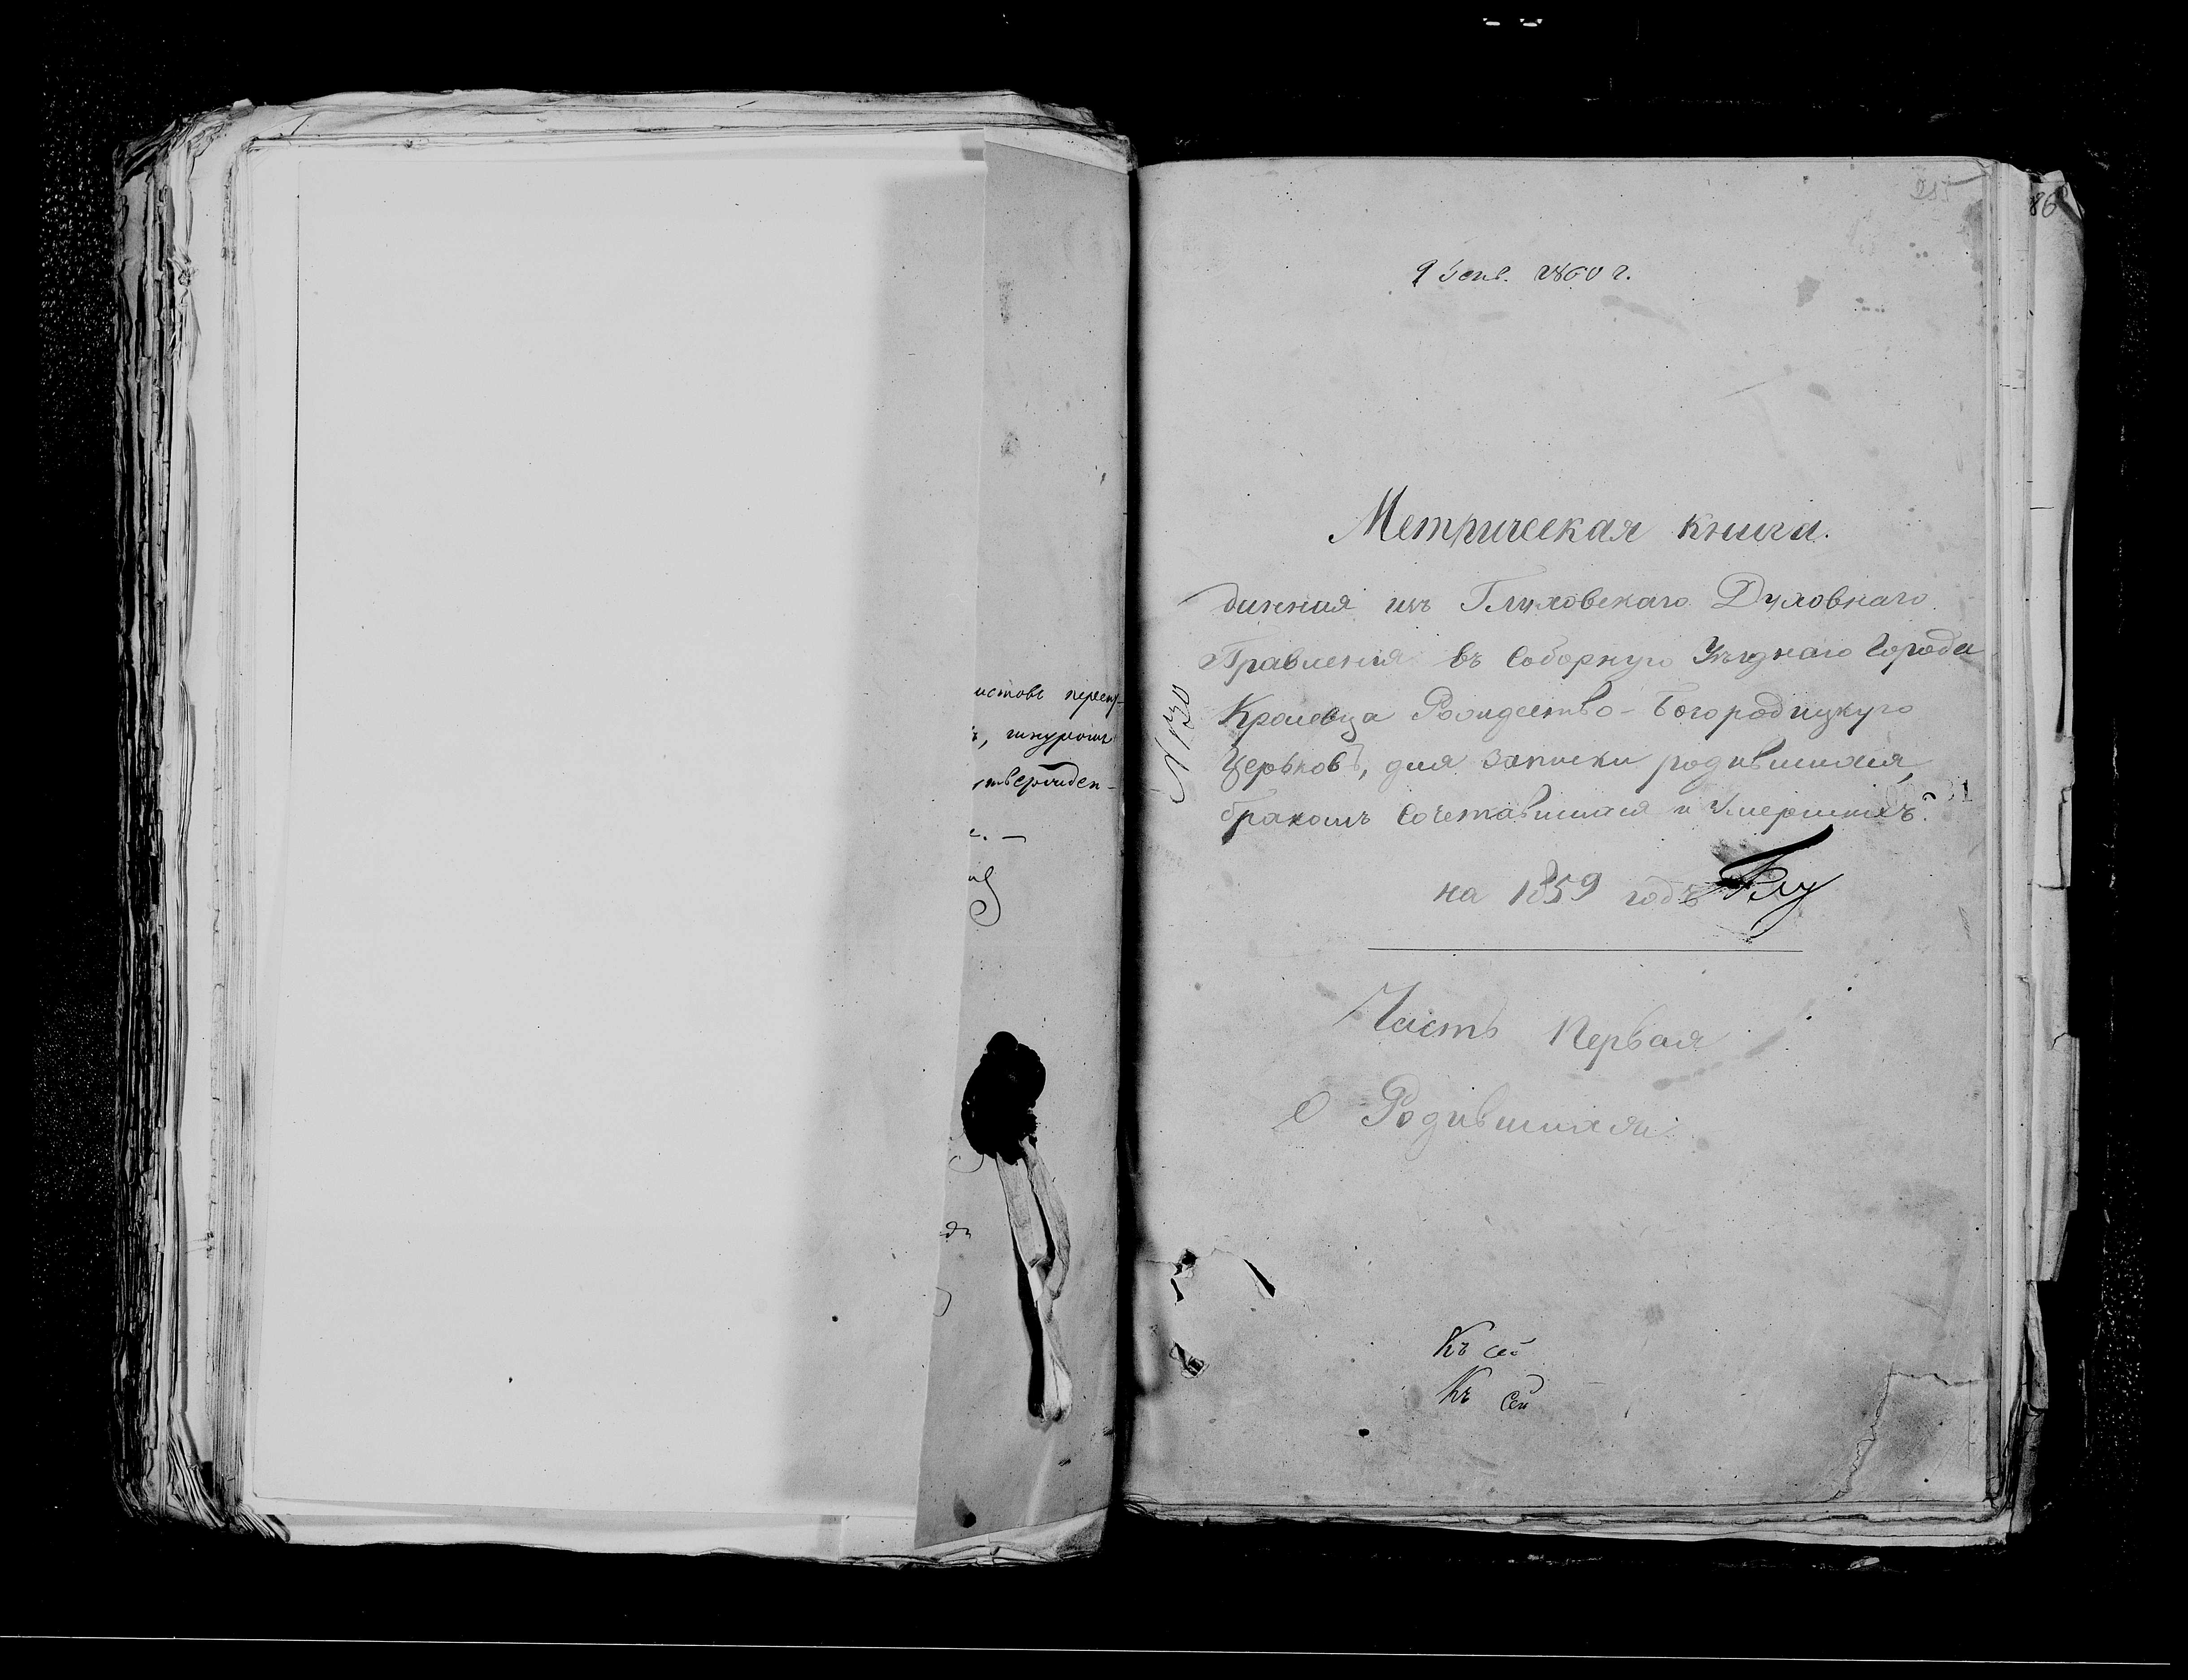 истовъ перену-
, шнуромъ
твержден-
9 Генв. 1860 г.
Метрическая книга.
данная изъ Глуховскаго Духовнаго
Правленія въ Соборную Уѣзднаго Города
Кролевца Рождество-Богородицкую
Церьковъ, для записки родившихся,
бракомъ сочетавшихся и Умершихъ.
на 1859 годъ Глу
№ 130
Часть Первая
О Родившихся
Къ сей
Къ сей
86